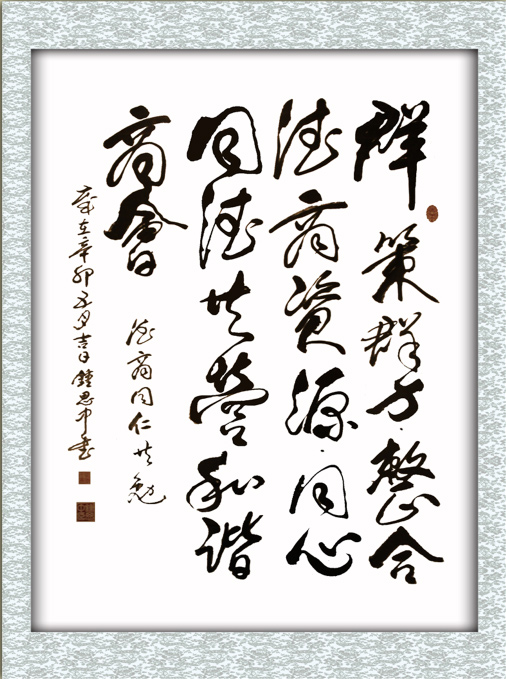 群策群力整合
德商資源同心
同德共營和谐
商會
德商同仁共勉
歲在辛卯五月吉日鍾思中書